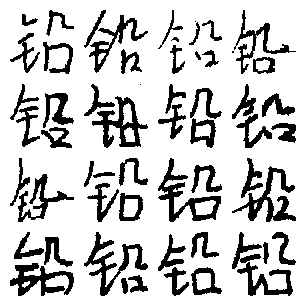 铅铅铅铅
铅铅铅铅
铅铅铅铅
铅铅铅铅